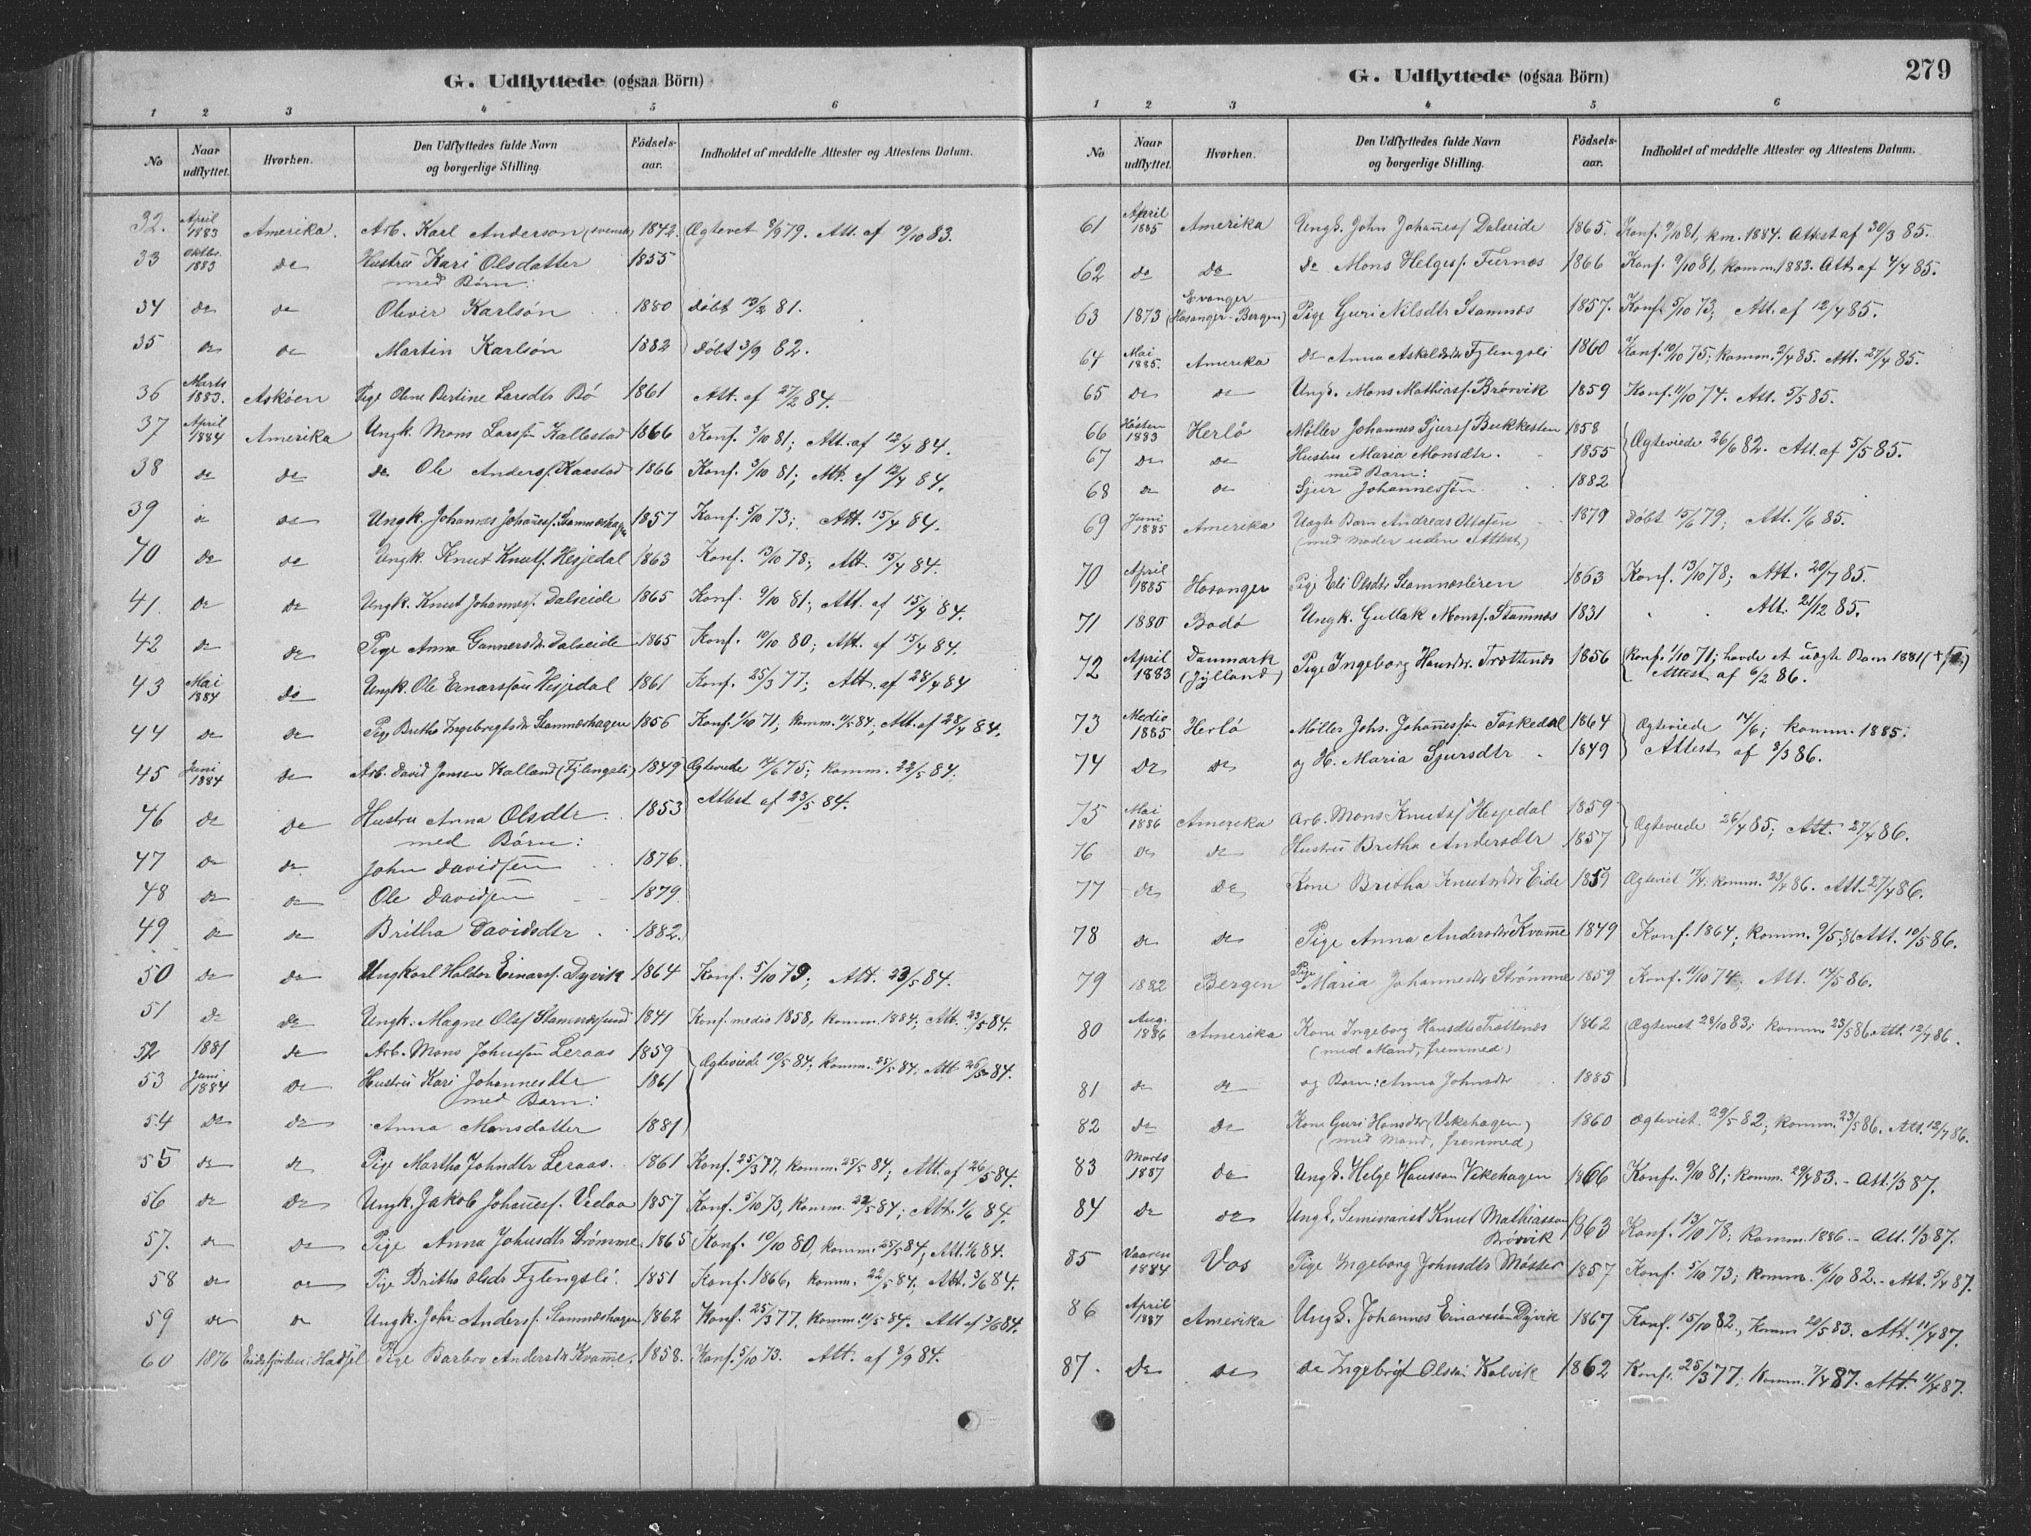 G. Udflyttede (ogsaa Börn)
1 2 3 4 5 6
No Naar udflyttet. Hvorhen. Den Udflyttedes fulde Navn og borgerlige Stilling. Födsels-aar. Indholdet af meddelte Attester og Attestens Datum.
32. April 1883 Amerika. Arb. Karl Anderson (svensk) 1842. Ægteviet 8/9 79. Att. af 19/10 83.
33 Oktbr. 1883 do Hustru Kari Olsdatter 1855
med Børn:
34 do do Oliver Karlsøn 1880 Døbt 13/2 81.
35 do do Martin Karlsøn 1882 Døbt 3/9 82.
36 Marts 1883. Askøen Pige Oline Bertine Larsdtr Bø 1861 Att. af 27/2 84.
37 April 1884 Amerika Ungk. Mons Larssøn Kallestad 1866 Konf. 9/10 81; Att. af 12/4 84.
38 do do do Ole Anderss. Kaastad 1866 Konf. 9/10 81; Att. af 12/4 84.
39 do do Ungk. Johannes Johañess. Stamneshagen 1857 Konf. 5/10 73; Att. 15/4 84.
40 do do Ungk. Knut Knuts. Hesjedal 1863 Konf. 13/10 78; Att. 15/4 84.
41. do do Ungk. Knut Johannes. Dalseide 1865 Konf. 9/10 81; Att. af 15/4 84.
42 do do Pige Anna Gunnersdtr Dalseide 1865 Konf. 10/10 80; Att. af 15/4 84.
43 Mai 1884 do Ungk. Ole Ernarssøn Hesjedal 1861 Konf. 25/3 77; Att. af 28/4 84
44 do do Pige Britha Ingebrigtsdtr Stamneshagen 1856 Konf. 1/10 71, komm. 9/5 84; Att. af 28/4 84.
45 Juni 1884 do Arb. David Jonsen Kalland (Fylengsli) 1849 Ægteviede 17/6 75; komm. 22/5 84.
46 do do Hustru Anna Olsdtr 1853 Attest af 23/5 84.
med Børn:
47 do do John Davidsen 1876.
48 do do Ole Davidsen 1879.
49 do do Britha Davidsdtr 1882.
50 do do Ungkarl Haldor Einars. Dyvik 1864 Konf. 5/10 79; Att. 23/5 84.
51 do do Ungk. Magne Ols. Stamnessund 1841 Konf. medio 1858, komm. 1884; Att. 23/5 84.
52 1881 do Arb. Mons Johnssøn Leraas 1859 Ægteviede 10/5 84; komm. 25/5 84. Att 26/5 84.
53 Juni 1884 do Hustru Kari Johannesdtr 1861
med Barn:
54 do do Anna Monsdatter 1881
55 do do Pige Martha Johnsdtr Leraas. 1861 Konf. 25/3 77, komm. 25/5 84; Att. af 26/5 84.
56 do do Ungk. Jakob Johañess. Vedaa 1857 Konf. 5/10 73, komm. 22/5 84; Att. 1/6 84.
57. do do Pige Anna Johnsdtr Strømme 1865 Konf. 10/10 80, komm. 25/5 84, Att. 1/6 84.
58 do do Pige Britha Olsdtr Fylengsli. 1851 Konf. 1866, komm. 22/5 84; Att. 3/6 84.
59 do do Ungk. John Anders. Stamneshagen 1862 Konf. 25/3 77, komm. 11/5 84. Att af 3/6 84.
60 1876 Eidsfjorden i Hadsel Pige Barbro Andersdtr Kvamme. 1858. Konf. 5/10 73. Att. af 8/9 84.
G. Udflyttede (ogsaa Börn) 279
1 2 3 4 5 6
No Naar udflyttet. Hvorhen. Den Udflyttedes fulde Navn og borgerlige Stilling. Födsels-aar. Indholdet af meddelte Attester og Attestens Datum.
61 April 1885 Amerika Ungk. John Johañess. Dalseide 1865. Konf. 9/10 81, km. 1884. Attest af 30/3 85.
62 do do do Mons Helges. Furnes 1866 Konf. 9/10 81, komm. 1883. Att af 4/4 85.
63 1873 Evanger (Hosanger-Bergen) Pige Guri Nilsdtr Stamnes 1857. Konf. 5/10 73, Att. af 12/4 85.
64 Mai 1885. Amerika do Anna Askeldsdtr Fylengsli 1860 Konf. 10/10 75; komm. 2/4 85. Att. 27/4 85.
65 do do Ungk. Mons Mathiass. Brørvik 1859 Konf. 11/10 74. Att. 5/5 85.
66 Høsten 1883 Herlø Møller Johannes Sjurs. Bukkesten 1858 Ægteviede 26/6 82. Att. af 5/5 85.
67 do do Hustru Maria Monsdtr. 1855
med Barn:
68 do do Sjur Johannessøn 1882
69 Juni 1885 Amerika Uægte Barn Andreas Ottesen 1879 Døbt 15/6 79; Att. 1/6 85.
(med Moder uden Attest)
70 April 1885 Hosanger Pige Eli Olsdtr Stamnesleren 1863 Konf. 13/10 78; Att. 20/7 85.
71 1880 Bodø Ungk. Gullak Mons. Stamnes 1831 Att. 21/12 85.
72 April 1883 Danmark (Jylland) Pige Ingeborg Hansdtr. Trættenes 1856 Konf. 1/10 71; havde et uægte Barn 1881
Attest af 6/2 86.
73 Medio 1885 Herlø Møller Johs. Johañessøn Toskedal 1864 Ægteviede 14/6; komm. 1885;
74 do do og H. Maria Sjursdtr 1849 Attest af 3/3 86.
75 Mai 1886 Amerika Arb. Mons Knuts. Hesjedal 1859 Ægteviede 26/4 85; Att. 27/4 86.
76 do do Hustru Britha Andersdtr 1857
77 do do Kone Britha Knutsdtr Eide 1859 Ægteviet 17/4. komm. 23/4 86. Att. 27/4 86.
78 do do Pige Anna Andersdtr Kvamme 1849 Konf. 1864; komm. 9/5 86 Att. 10/5 86.
79 1882 Bergen Pige Maria Johannesdtr Strømme 1859 Konf. 11/10 74. Att. 14/5 86.
80 Aug. 1886 Amerika Kone Ingeborg Hansdtr Trættenes 1862 Ægteviet 28/10 83; komm. 23/5 86. Att. 12/7 86.
(med Mand, fremmed)
81 do do og Barn: Anna Johnsdtr 1885
82 do do Kone Guri Hansdtr (Vikehagen) 1860 Ægteviet 29/5 82; komm. 23/5 86. Att. 12/7 86.
(med Mand, fremmed)
83 Marts 1887 do Ungk. Helge Hanssøn Vikehagen 1866 Konf. 9/10 81; komm. 29/4 83. - Att. 1/3 87.
84 do do Ungk. Seminarist Knut Mathiassøn 1863 Konf. 13/10 78; komm. 1886. - Att. 1/3 87.
Brørvik
85 Vaaren 1884 Vos Pige Ingeborg Johnsdtr Møster 1857 Konf. 5/10 73; komm. 16/10 82. - Att. 5/4 87.
86 April 1887 Amerika Ungk. Johannes Einarssøn Dyvik 1867 Konf. 15/10 82, komm 20/5 83. Att. 11/4 87.
87. do do do Ingebrigt Olssøn Kalvik 1862 Konf. 25/3 77; komm. 7/4 87. Att. 11/4 87.